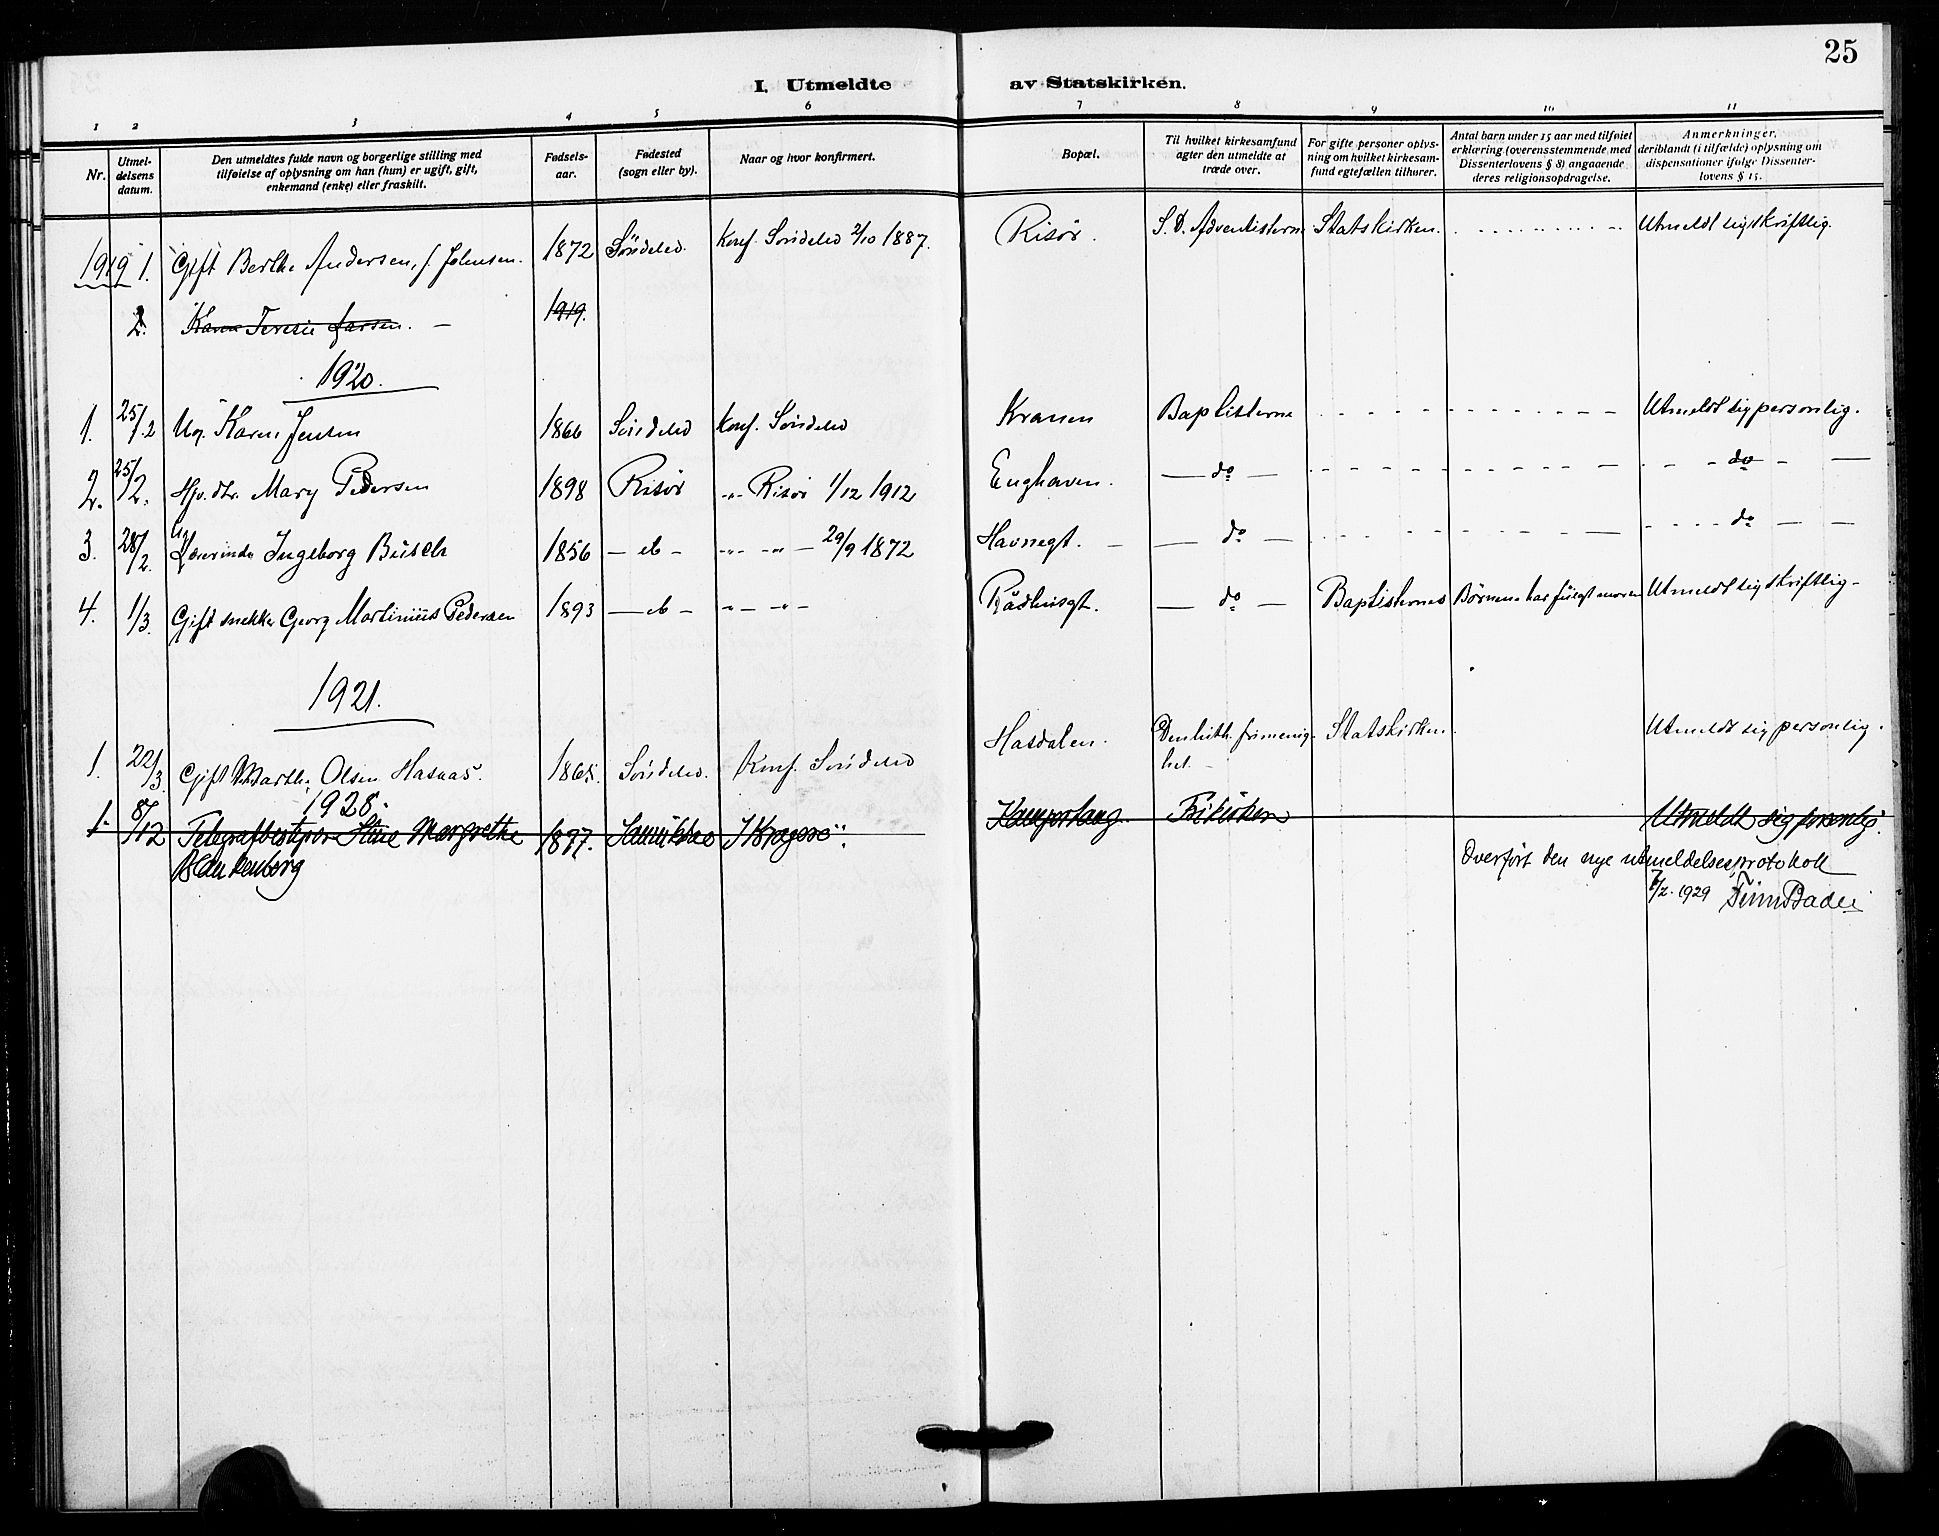 25
I. Utmeldte av Statskirken.
1 2 3 4 5 6 7 8 9 10 11
Nr.
Utmel-
delsens
datum.
Den utmeldtes fulde navn og borgerlige stilling med
tilføielse af oplysning om han (hun) er ugift, gift,
enkemand (enke) eller fraskilt.
Fødsels-
aar.
Fødested
(sogn eller by).
Naar og hvor konfirmert.
Bopæl.
Til hvilket kirkesamfund
agter den utmeldte at
træde over.
For gifte personer oplys-
ning om hvilket kirkesam-
fund egtefællen tilhører.
Antal barn under 15 aar med tilføiet
erklæring (overensstemmende med
Dissenterlovens § 8) angaaende
deres religionsopdragelse.
Anmerkninger,
deriblandt (i tilfælde) oplysning om
dispensationer ifølge Dissenter-
lovens § 15.
1919 1. Gift Berthe Andersen, f. Johnsen. 1872 Söndeled. Konf. Söndeled 2/10 1887. Risör. S. D. Adventisterne Statskirken. Utmeldt sig skriftlig.
2. Karen Teresie Larsen. – 1919.
1920.
1. 25/2 Ug. Karen Jensen 1866 Söndeled Konf. Söndeled Kranen Baptisterne Utmeldt sig personlig.
2. 25/2. Hjv. dtr. Mary Pedersen 1898 Risör -"- Risör 1/12 1912 Enghaven. – do – – do –
3. 28/2. Ug. Lærerinde Ingeborg Busch 1856 – do – -"- -"- – 29/9 1872 Havnegt. – – do – – do – –
4. 1/3. Gift snekker Georg Martinius Pedersen 1893 – do – -"- -"- Rådhusgt. – do – Baptisternes Börnene har fulgt moren Utmeldt sig skriftlig –
1921.
1. 22/3. Gift Marthe Olsen Hasaas. 1865. Söndeled. Konf. Söndeled Hasdalen. Den luth. frimenig-
het. – Statskirken. Utmeldt sig personlig.
1928.
1. 8/12 Telegrafbestyrer Margrethe
Blankenborg 1877. I Kragerø Frikirken Utmeldt sig personlig.
Overført den nye utmeldelsesprotokoll
7/2. 1929 Finn